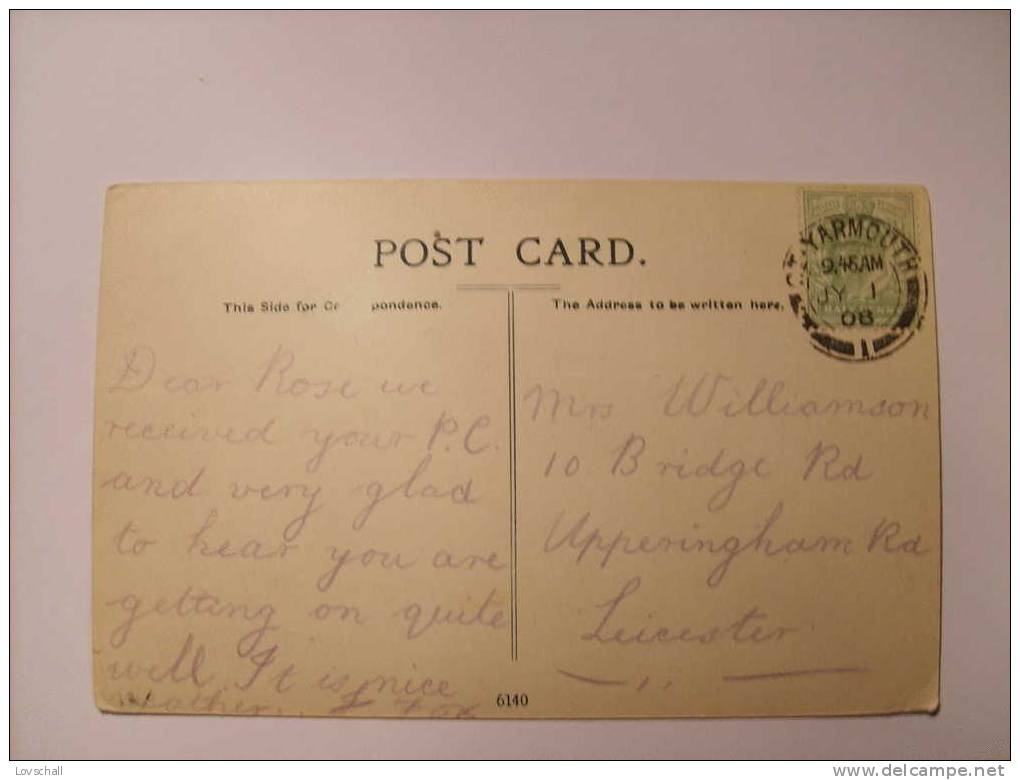 POST CARD.
This Side for Co pondence.
The Address to be written here.
YARMOUTH
9.45AM
JY 1
08
1
Dear Rose we
received your P.C.
and very glad
to hear you are
getting on quite
well It is nice
weather. Fox
Mrs Williamson
10 Bridge Rd
Upperingham Rd
Leicester
6140
Lovschall
www.delcampe.net